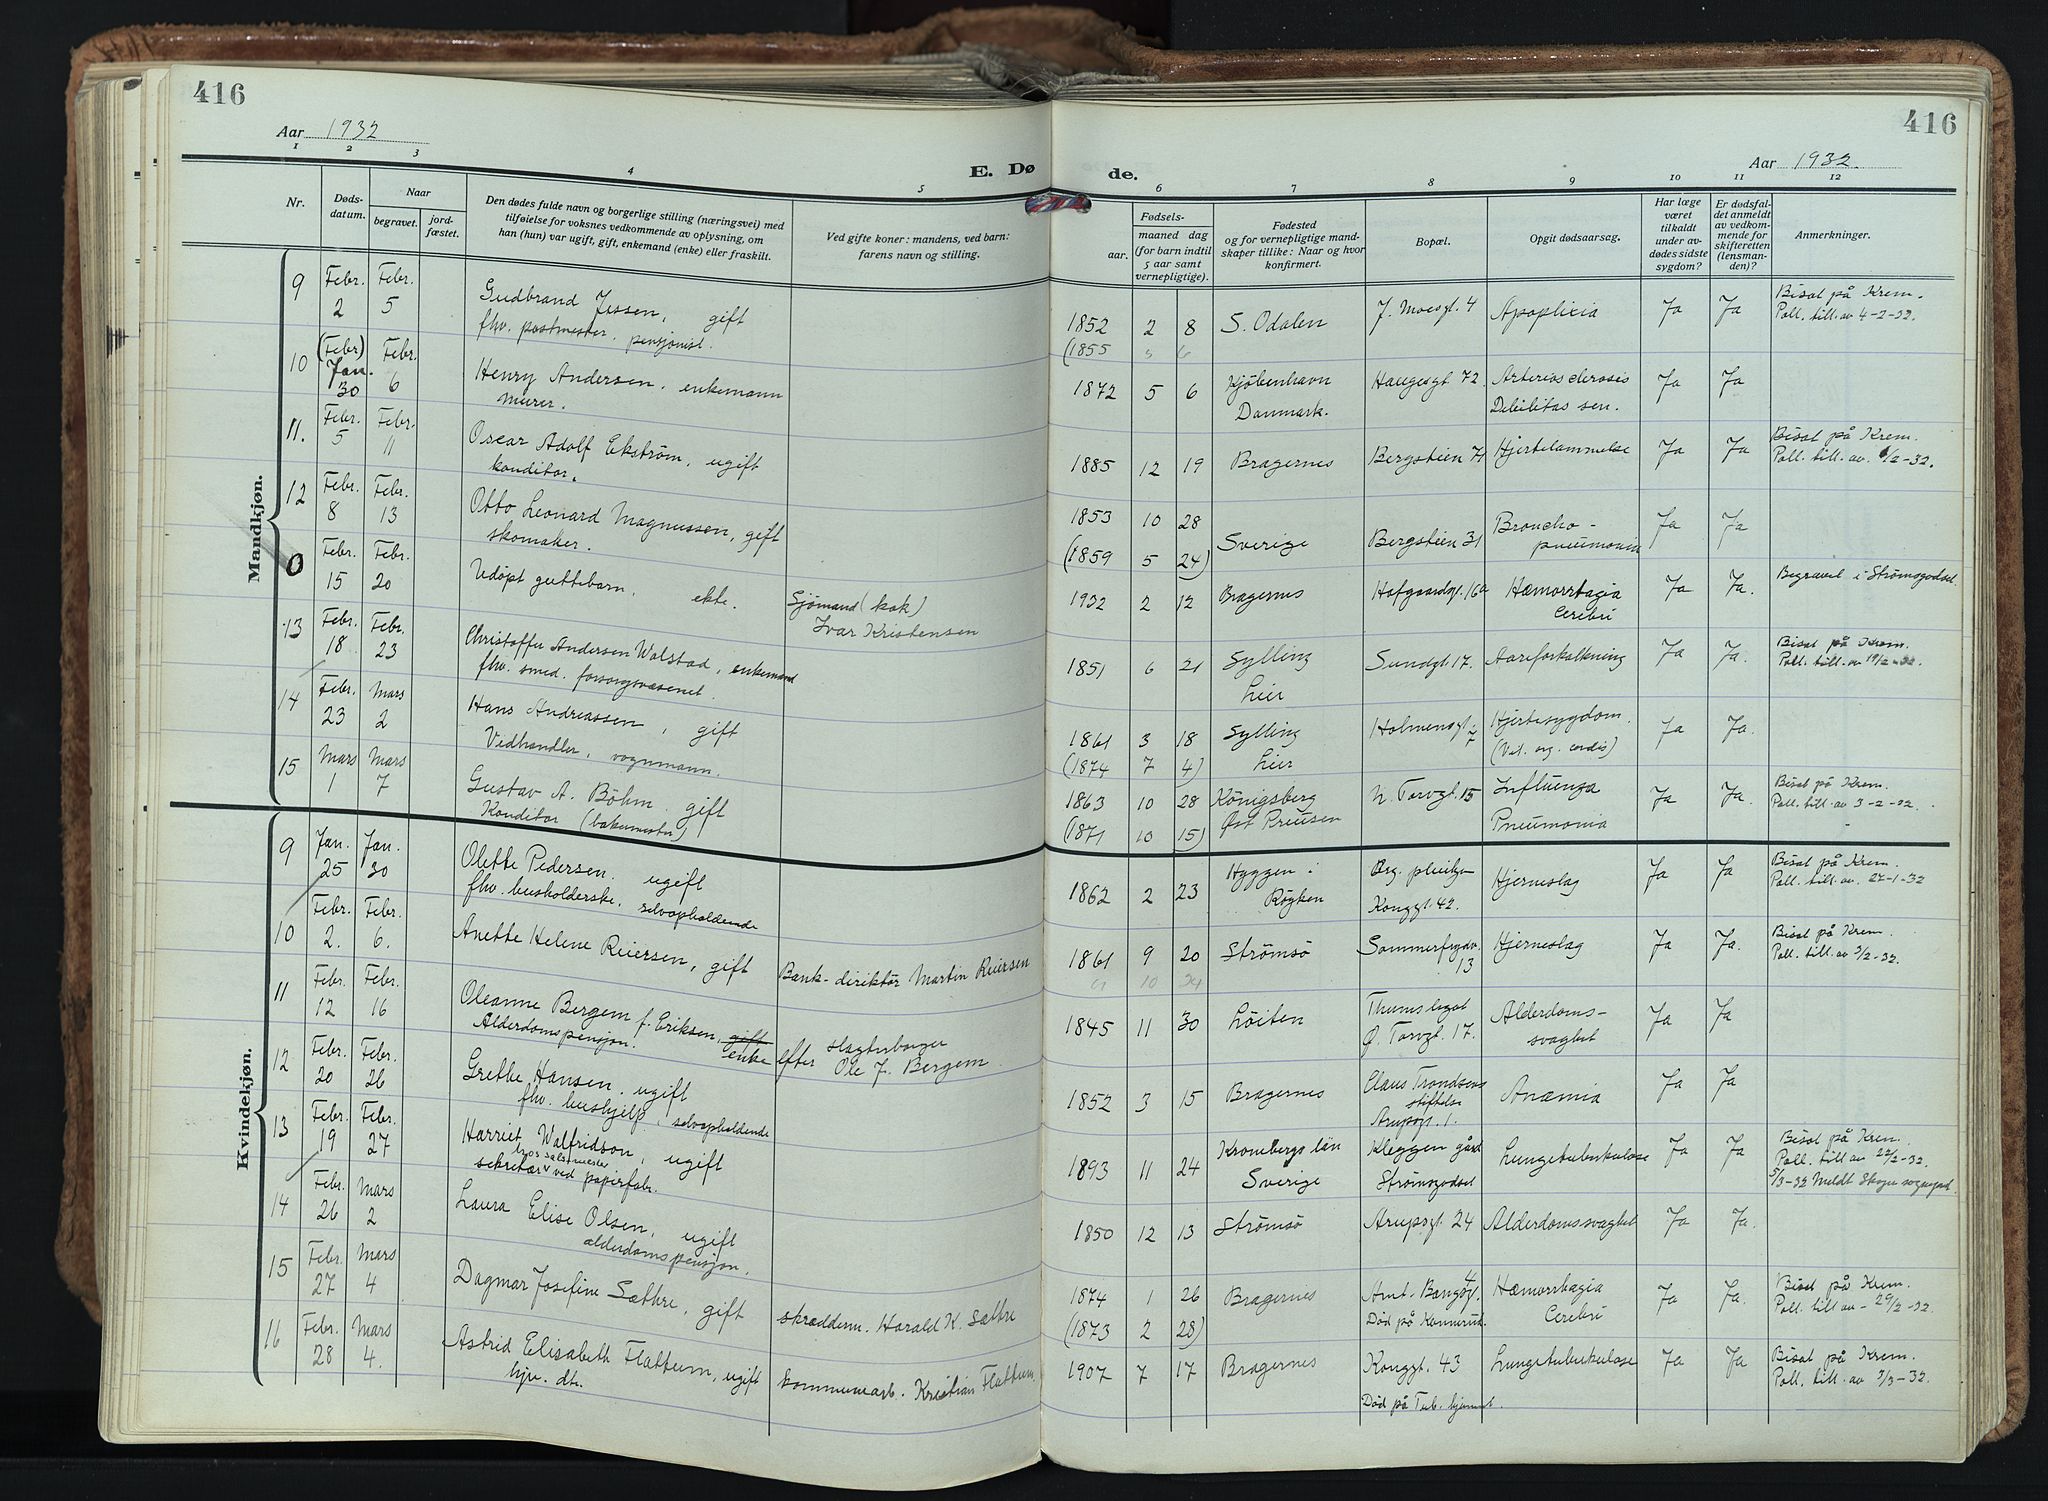 416
416
Aar 1932
Aar 1932
E. Dø
de.
1 2 3 4 5 6 7 8 9 10 11 12
Nr.
Døds-
datum.
Naar
begravet.
jord-
fæstet.
Den dødes fulde navn og borgerlige stilling (næringsvei) med
tilføielse for voksnes vedkommende av oplysning, om
han (hun) var ugift, gift, enkemand (enke) eller fraskilt.
Ved gifte koner: mandens, ved barn:
farens navn og stilling.
Fødsels-
aar.
maaned dag
(for barn indtil
5 aar samt
vernepligtige).
Fødested
og for vernepligtige mand-
skaper tillike: Naar og hvor
konfirmert.
Bopæl.
Opgit dødsaarsag.
Har læge
været
tilkaldt
under av-
dødes sidste
sygdom?
Er dødsfal-
det anmeldt
av vedkom-
mende for
skifteretten
(lensman-
den)?
Anmerkninger.
Mandkjøn.
9 Febr. 2 Febr. 5 Gudbrand Jessen, gift
fhv. postmester, pensjonist.
1852 2 8 S. Odalen J. Moesgt. 4 Apoplicia Ja Ja Bisat på Krem.
Poll. till. av 4-2-32.
(1855 5 6
10 (Febr) Jan. 30 Febr. 6 Henry Andersen, enkemann
murer.
1872 5 6 Kjöbenhavn Haugesgt 72. Arteriosclerosis Ja Ja
Danmark. Debilitas sen.
11. Febr. 5 Febr. 11 Oscar Adolf Ekström, ugift
konditor.
1885 12 19 Bragernes Bergstien 71 Hjertelammelse Ja Ja Bisat på Krem.
Poll. till. av 6/2-32.
12 Febr. 8 Febr. 13 Otto Leonard Magnussen, gift
skomaker.
1853 10 28
(1859 5 24) Sverige Bergstien 31 Broncho-
pneumonia Ja Ja
0 Febr. 15 Febr. 20 Udöpt guttebarn, ekte. Sjömand (kok)
Ivar Kristensen
1932 2 12 Bragernes Hofgaardsgt. 16a Hæmorrhagia Ja Ja. Begravet i Strömsgodset.
Cerebri
13 Febr. 18 Febr. 23 Christoffer Andersen Walstad, enkemand
fhv. smed. forsorgsvæsenet.
1851 6 21 Sylling Sundgt. 17. Aareforkalkning Ja Ja. Bisat på Krem.
Lier Poll. till. av 19/2-32
14 Febr. 23 Mars 2 Hans Andreassen, gift
Vedhandler, vognmann.
1861 3 18 Sylling Holmensgt. 7 Hjertesygdom. Ja Ja.
(1874 7 4) Lier (Vit. org. cordis)
15 Mars 1 Mars 7 Gustav A. Böhm, gift
Konditor (bakemester)
1863 10 28 Königsberg N. Torvgt. 15 Influenza Ja Ja. Bisat på Krem.
Poll. till. av 3-2-32.
(1871 10 15) Øst Preusen Pneumonia
Kvindekjøn.
9 Jan. 25 Jan. 30 Olette Pedersen, ugift
fhv. husholderske, selvopholdende
1862 2 23 Hyggen i Org. pleiehj. Hjerneslag Ja Ja Bisat på Krem.
Röyken Konggt. 42. Poll. till. av. 27-1-32
10 Febr. 2. Febr. 6. Anette Helene Reiersen, gift Bank-direktör Martin Reiersen
1861 9 20 Strömsö Sommerfrydv. 13 Hjerneslag Ja Ja. Bisat på Krem.
Poll. till. av 3/2-32.
10 24
11 Febr. 12 Febr. 16 Oleanne Bergem f. Eriksen, gift
Alderdomspensjon. enke efter slagterborger
Ole J. Bergem.
1845 11 30 Löiten Thamslegat Alderdoms- Ja Ja
Ø. Torvgt. 17. svaghet
12 Febr. 20 Febr. 26 Grethe Hansen, ugift
fhv. hushjelp, selvopholdende
1852 3 15 Bragernes Claus Trondsens Anæmia Ja Ja
stiftelse
Arupsgt. 1.
13 Febr. 19 Febr. 27 Harriet Walfridson, ugift
sekretær ved papirfabr.
1893 11 24 Kronobergs län Kleggen gård Lungetuberkulose Ja Ja Bisat på Krem.
Sverige Strömsgodset Poll. till av 22/2-32.
5/3-32 Meldt Skoger sogneprest
14 Febr. 26 Mars 2 Laura Elise Olsen, ugift
alderdomspensjon.
1850 12 13 Strömsö Arupsgt. 24 Alderdomssvaghet Ja Ja.
15 Febr. 27 Mars 4 Dagmar Josefine Sæthre, gift skrædderm. Harald K. Sæthre
1874 1 26 Bragernes Amt. Bangsgt. 4 Hæmorrhagia Ja Ja. Bisat på Krem.
(1873 2 28) Död på Konnerud. Cerebri Poll. till av - 29/2-32.
16 Febr. 28 Mars 4. Astrid Elisabeth Flattum, ugift kommunearb. Kristian Flattum.
hjv. dtr.
1907 7 17 Bragernes Konggt. 43 Lungetuberkulose Ja Ja Bisat på Krem.
Död på Tub. hjemmet. Poll. till. av 2/3-32.